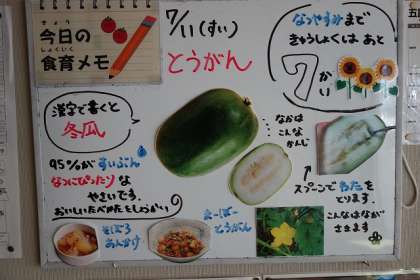 きょう
今日の
しょくいく
食育メモ
7/11(すい)
とうがん
なつやすみまで
きゅうしょくはあと
7
かい
漢字で書くと
冬瓜
95%がすいぶん
なつにぴったりな
やさいです。
おいしいたべかたをしょうかい
なかは
こんな
かんじ
スプーンでわたを
とります。
こんなはなが
さきます
そぼろ
あんかけ
まーぼー
とうがん